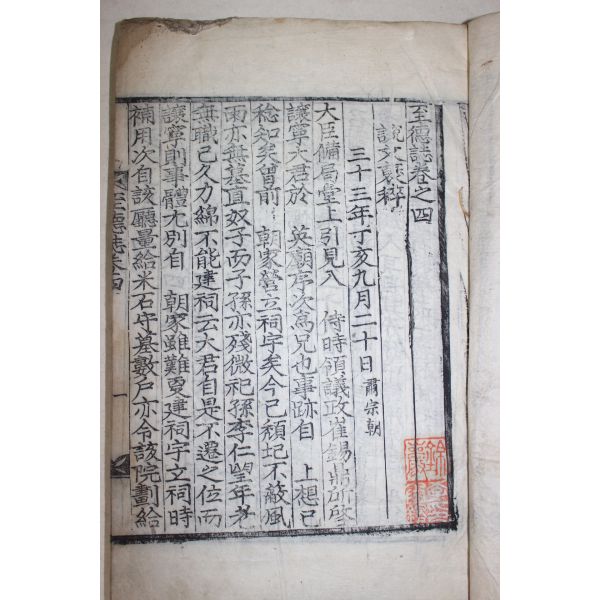 至德誌卷之四
說文褒粹
三十三年丁亥九月二十日 肅宗朝
大臣備局堂上引見入 侍時領議政崔錫鼎所啓
讓寧大君於 英廟序次爲兄也事跡自 上想已
稔知矣曾前 朝家營立祠宇矣今已頹圮不蔽風
雨亦無墓直奴子而子孫亦殘微祀孫李仁望年老
無職已久力綿不能建祠云大君自是不遷之位而
讓寧則事體尤別自 朝家雖難更建祠宇立祠時
補用次自該廳量給米石守墓數戶亦令該院劃給
至德誌卷四 一